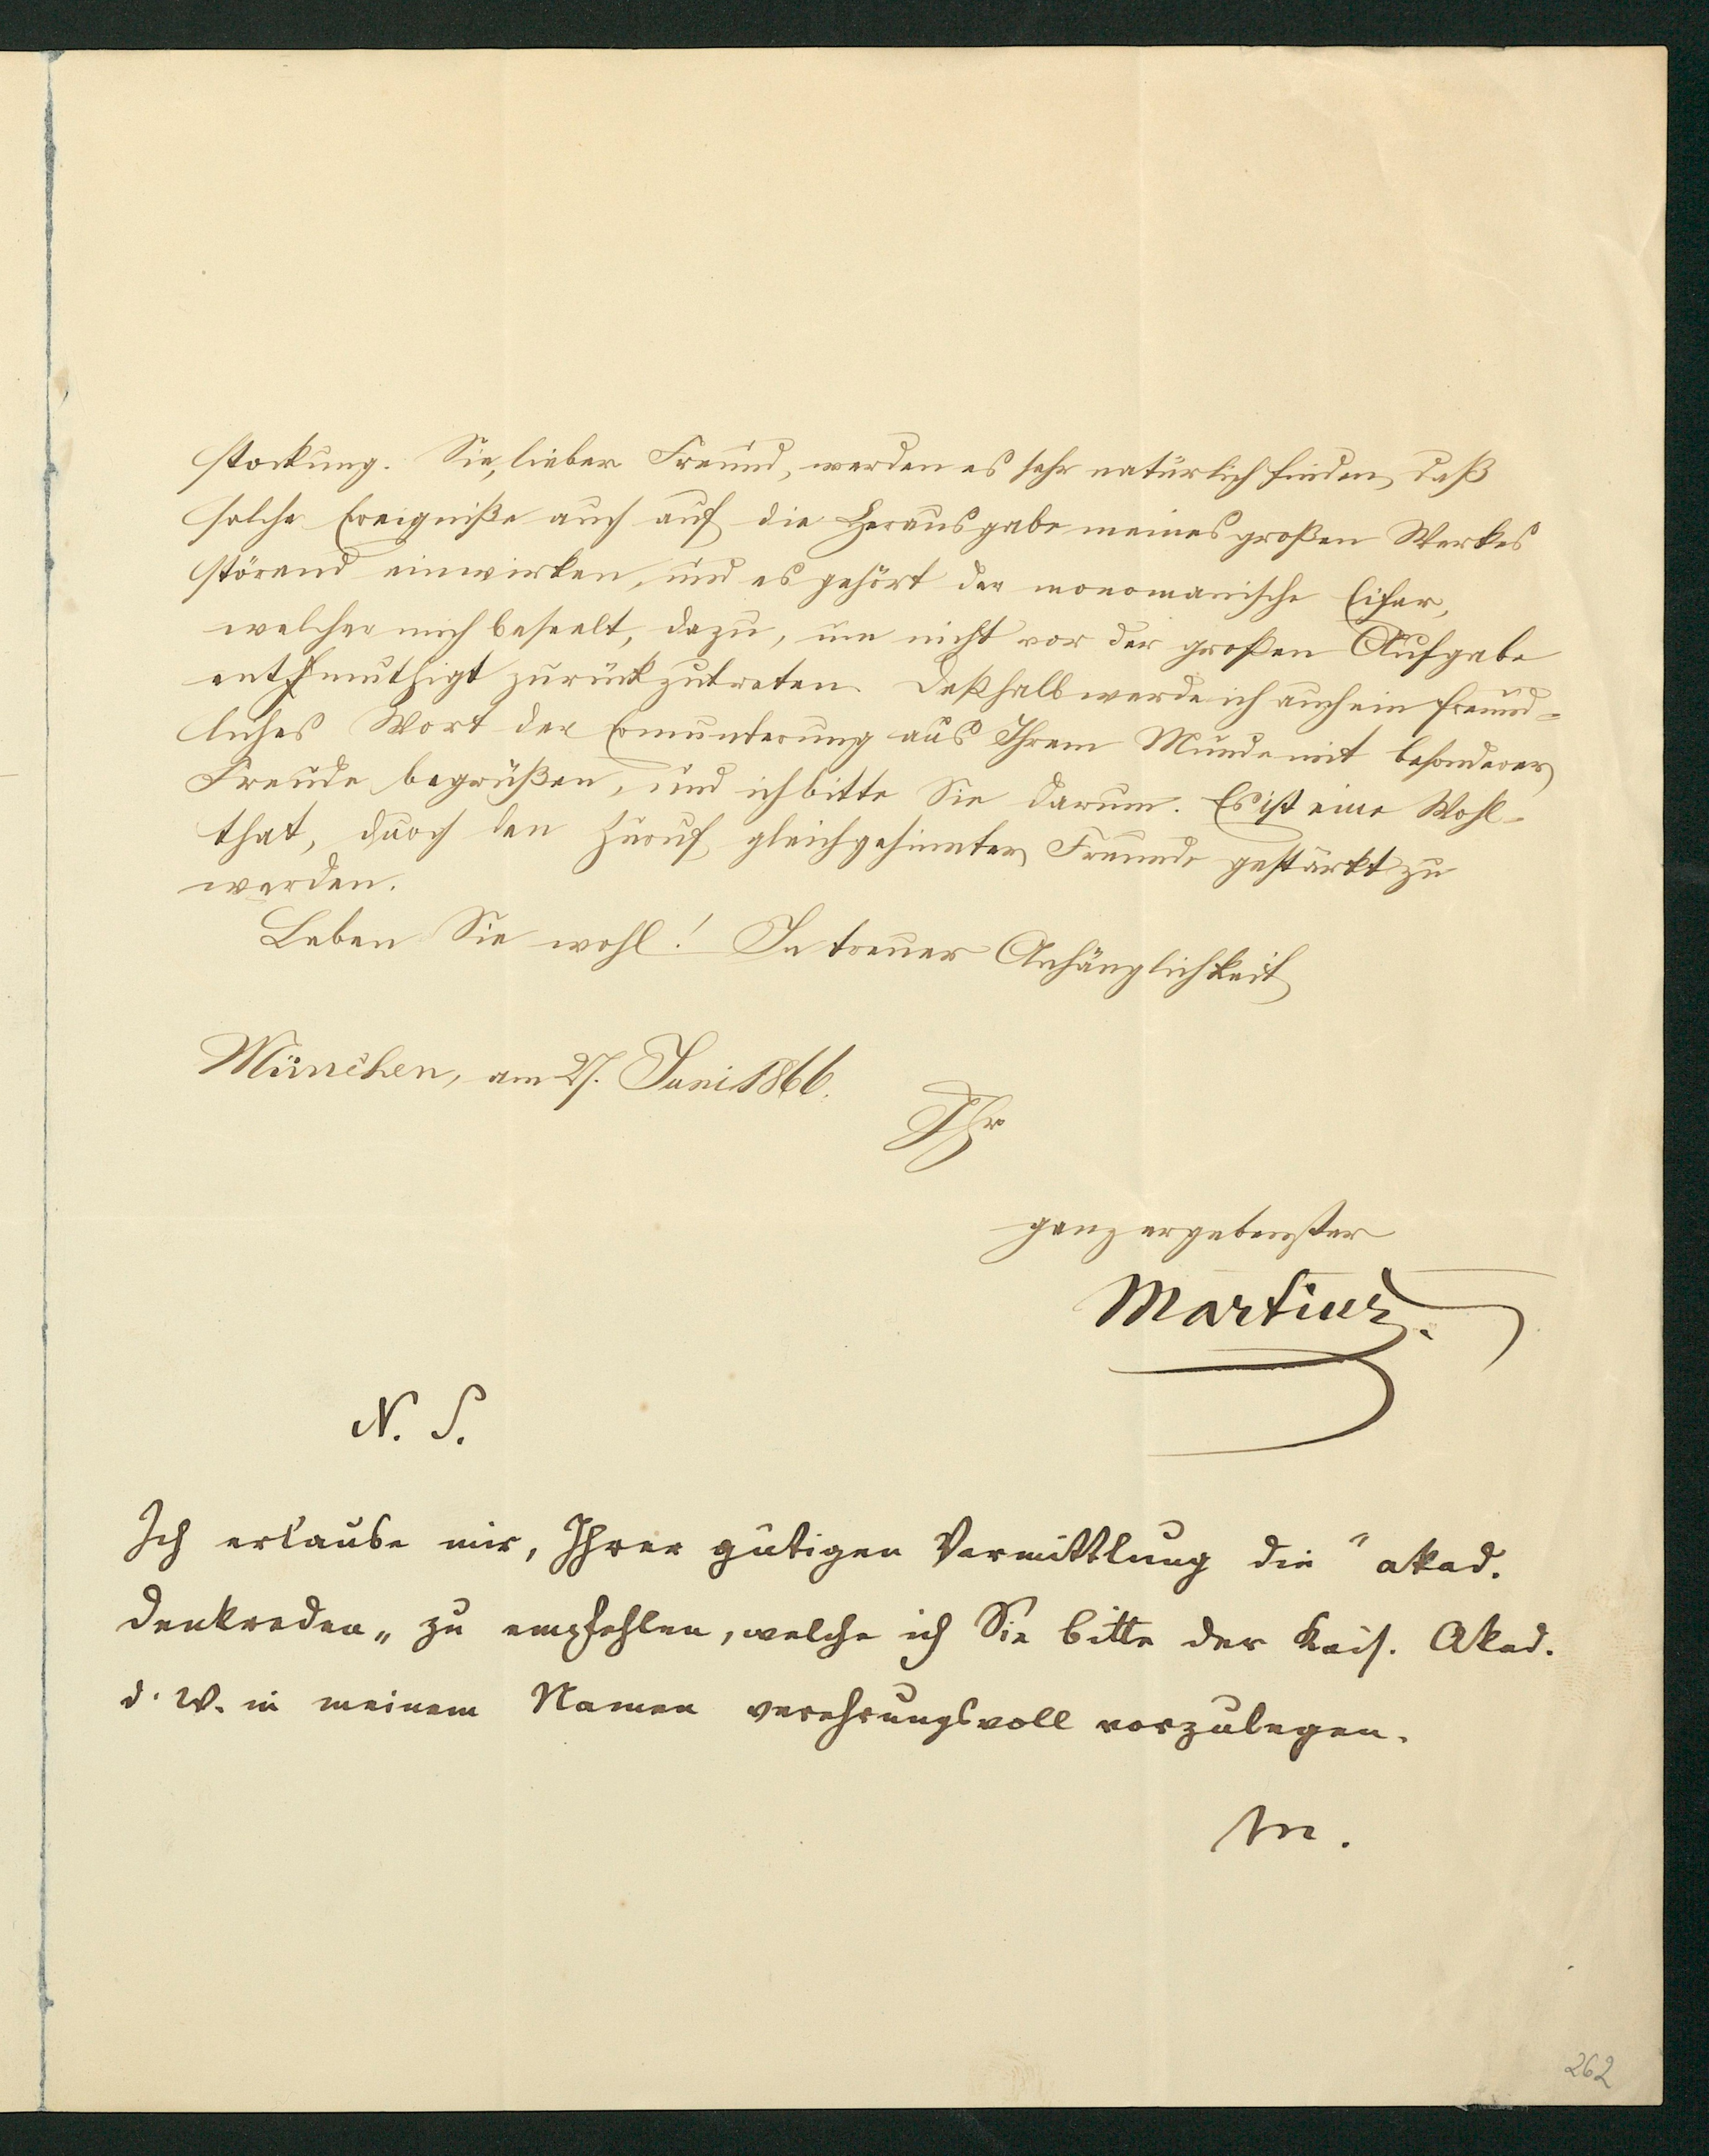 stockung. Sie, lieber Freund, werden es sehr natürlich finden, daß
solche Ereigniße auch auf die Herausgabe meines großen Werkes
störend einwirken, und es gehört der monomanische Eifer,
welcher mich beseelt, dazu, um nicht vor der großen Aufgabe
entmuthigt zurückzutreten. Deßhalb werde ich auch ein freund=
liches Wort der Ermunterung aus Ihrem Munde mit besonderer
Freude begrüßen, und ich bitte Sie darum. Es ist eine Wohl-
that, durch den Zuruf gleichgesinnter Freunde gestärkt zu
werden.
Leben Sie wohl! In treuer Anhänglichkeit
München, am 27. Juni 1866.
Ihr
ganz ergebenster
Martius.
N. S.
Ich erlaube mir, Ihrer gütigen Vermittlung die "akad.
Denkreden„ zu empfehlen, welche ich Sie bitte der Kais. Akad.
d. W. in meinem Namen verehrungsvoll vorzulegen.
M.
262